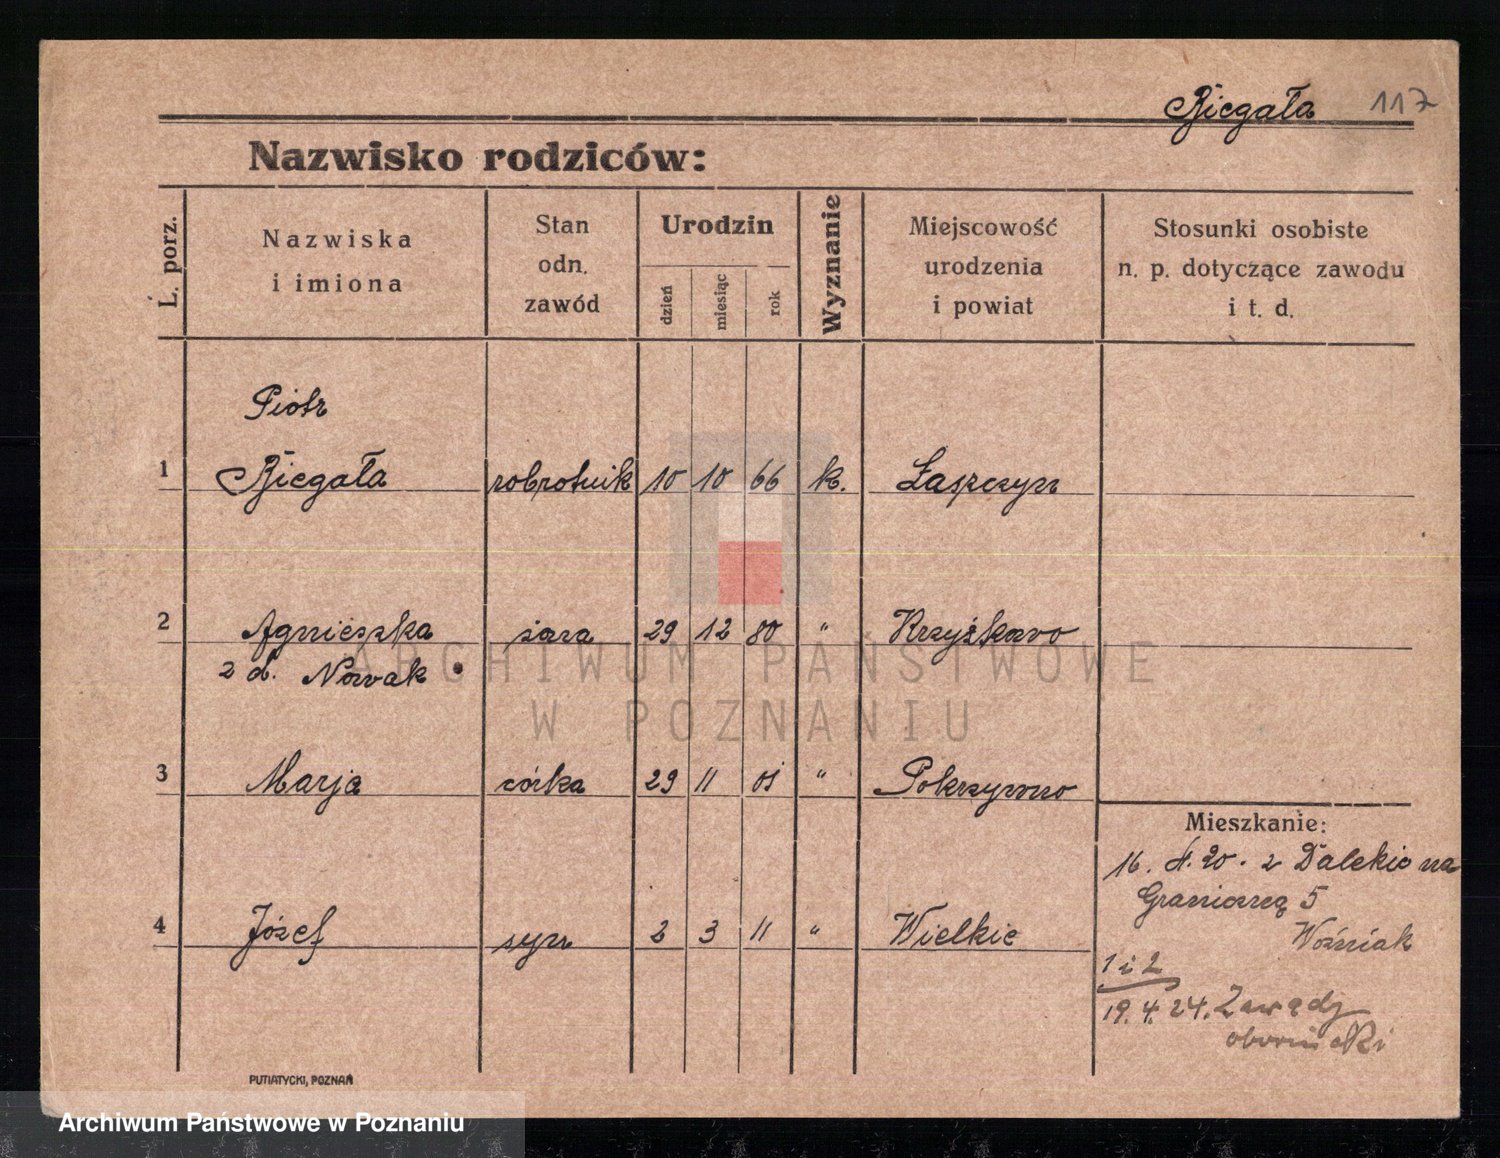 Biegała 117
Nazwisko rodziców:
L. porz.
Nazwiska
i imiona
Stan
odn.
zawód
Urodzin
dzień
miesiąc
rok
Wyznanie
Miejscowość
urodzenia
i powiat
Stosunki osobiste
n. p. dotyczące zawodu
i t. d.
Piotr
1 Biegała robrotnik 10 10 66 k. Łaszczyn
2 Agnieszka żona 29 12 80 " Krzyżkowo
z d. Nowak
3 Marja córka 29 11 01 " Pokrzywno
4 Józef syn 2 3 11 " Wielkie
Mieszkanie:
16. 4. 20. z Dalekie na
Graniczną 5
Woźniak
1 i 2
19. 4. 24. Zawady
obornicki
PUTIATYCKI, POZNAŃ
ARCHIWUM PAŃSTWOWE
W POZNANIU
Archiwum Państwowe w Poznaniu